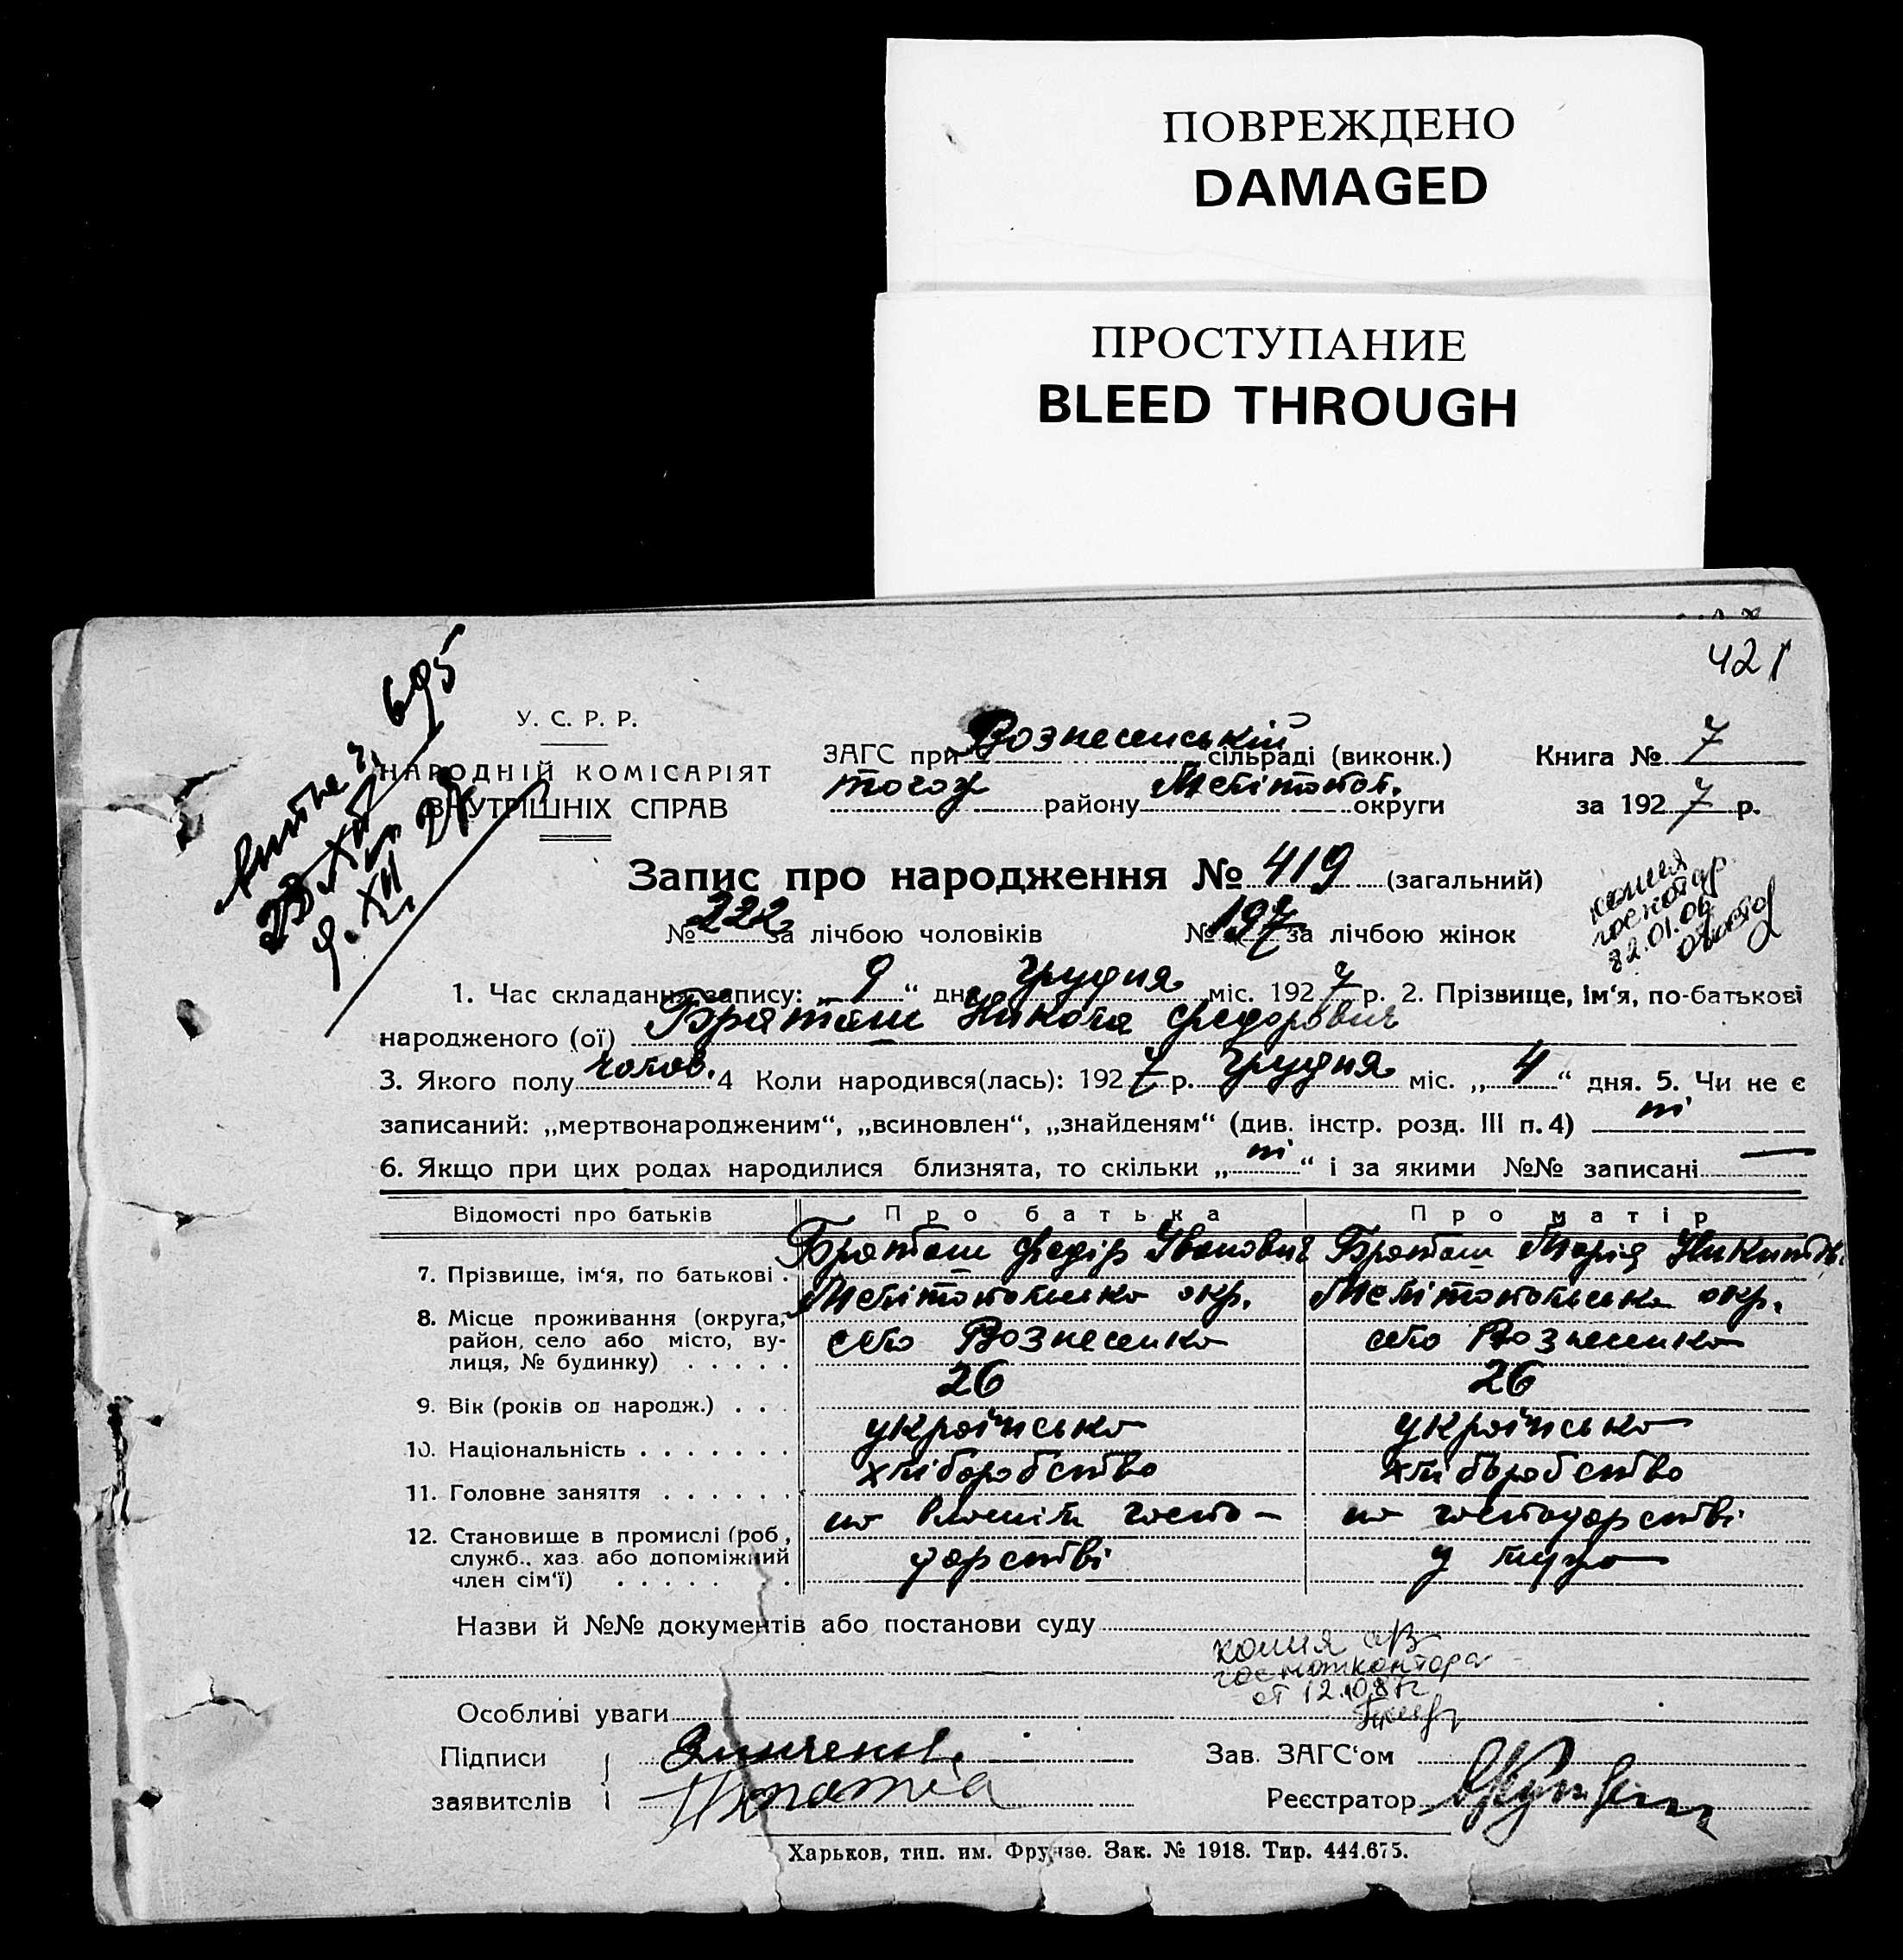 ПОВРЕЖДЕНО
DAMAGED
ПРОСТУПАНИЕ
BLEED THROUGH
421
695
У. С. Р. Р.
НАРОДНІЙ КОМІСАРІЯТ
ВНУТРІШНІХ СПРАВ
ЗАГС при Вознесенській сільраді (виконк.)
тогож району Мелітопол. округи
Книга № 7
за 1927 р.
Запис про народження № 419 (загальний)
№ 222 за лічбою чоловіків № 197 за лічбою жінок
копия
1. Час складання запису: „ 9 “ дня грудня міс. 1927 р. 2. Прізвище, ім‘я, по-батькові
народженого (ої) Браташ Никола Федорович
3. Якого полу чолов. 4 Коли народився(лась): 1927 р. грудня міс. „ 4 “ дня. 5. Чи не є
записаний: „мертвонародженим“, „всиновлен“, „знайденям“ (див. інстр. розд. III п. 4) ні
6. Якщо при цих родах народилися близнята, то скільки „ ні “ і за якими №№ записані —
Відомості про батьків Про батька Про матір
7. Прізвище, ім‘я, по батькові . Браташ Федір Іванович Браташ Марія Никитів.
8. Місце проживання (округа, район, село або місто, вулиця, № будинку) . . . . . Мелітопольська окр. Мелітопольська окр.
село Вознесенка село Вознесенка
9. Вік (років од народж.) . . . 26 26
10. Національність . . . . . . . українська українська
11. Головне заняття . . . . . . хліборобство хліборобство
12. Становище в промислі (роб., служб., хаз. або допоміжний член сім‘ї) . . . . . . по власнім госпо- по господарстві
дарстві у мужа
Назви й №№ документів або постанови суду
копия
госнотконтора
от 12.10.87г
Особливі уваги
Підписи
заявителів
Зав. ЗАГС‘ом
Реєстратор
Харьков, тип. им. Фрунзе. Зак. № 1918. Тир. 444.675.